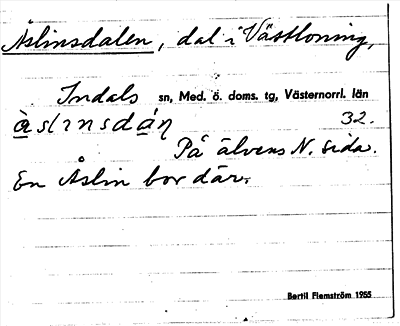 Åslinsdalen, dal i Västloning,
Indals sn, Med. ö. doms. tg, Västernorrl. län
32.
På älvens N. sida.
En Åslin bor där.
Bertil Flemström 1955